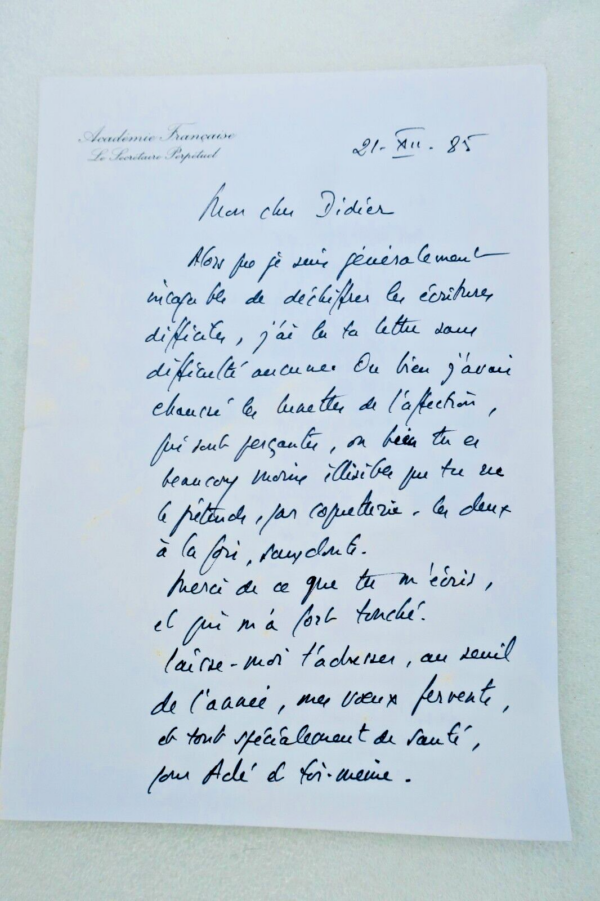 Académie Française
Le Secrétaire Perpétuel
21-XII-85
Mon cher Didier
Alors que je suis généralement
incapable de déchiffrer les écritures
difficiles, j'ai lu ta lettre sans
difficulté aucune. Ou bien j'avais
chaussé les lunettes de l'affection,
qui sont perçantes, ou bien tu es
beaucoup moins illisible que tu ne
le prétends, par coquetterie. Les deux
à la fois, sans doute.
Merci de ce que tu m'écris,
et qui m'a fort touché.
Laisse-moi t'adresser, au seuil
de l'année, mes vœux fervents,
et tout spécialement de santé,
pour Adé et toi-même.